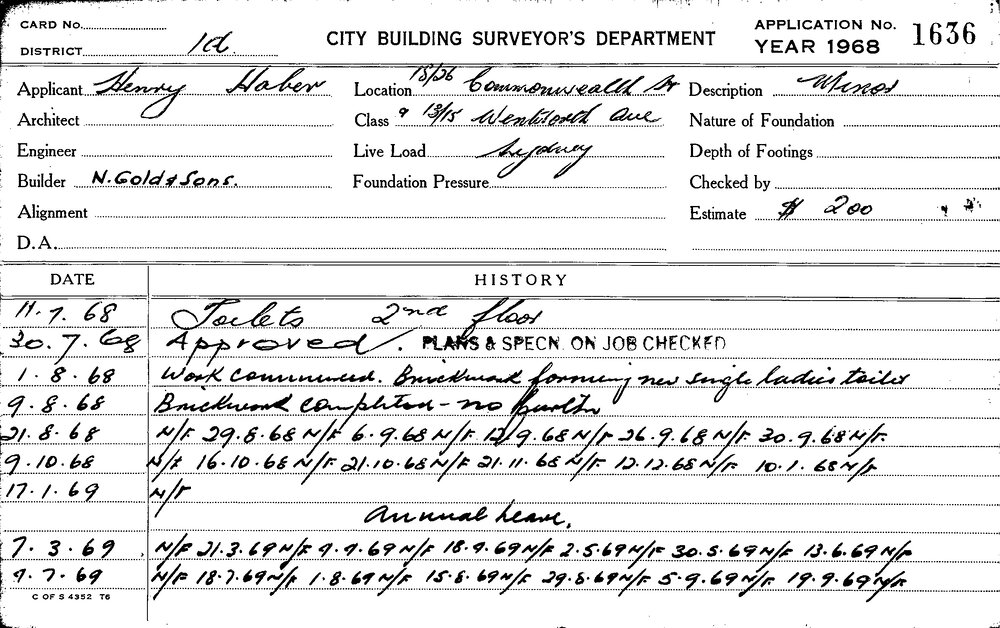 CARD No.
DISTRICT 1d
CITY BUILDING SURVEYOR'S DEPARTMENT
APPLICATION No. 1636
YEAR 1968
Applicant Henry Haber
Location 18/26 Commonwealth St
Description Minor
Architect
Class 9 13/15 Wentworth Ave
Nature of Foundation
Engineer
Live Load Sydney
Depth of Footings
Builder N. Gold & Sons.
Foundation Pressure
Checked by
Alignment
Estimate $ 200
D.A.
DATE HISTORY
11.7.68 Toilets 2nd floor
30.7.68 Approved. PLANS & SPECN. ON JOB CHECKED
1.8.68 Work commenced. Brickwork forming new single ladies toilet
9.8.68 Brickwork completed - no further
21.8.68 N/F 29.8.68 N/F 6.9.68 N/F 12/9.68 N/F 26.9.68 N/F 30.9.68 N/F
9.10.68 N/F 16.10.68 N/F 21.10.68 N/F 21.11.68 N/F 12.12.68 N/F 10.1.68 N/F
17.1.69 N/F
Annual Leave.
7.3.69 N/F 21.3.69 N/F 9.4.69 N/F 18.4.69 N/F 2.5.69 N/F 30.5.69 N/F 13.6.69 N/F
4.7.69 N/F 18.7.69 N/F 1.8.69 N/F 15.8.69 N/F 29.8.69 N/F 5.9.69 N/F 19.9.69 N/F
C OF S 4352 T6